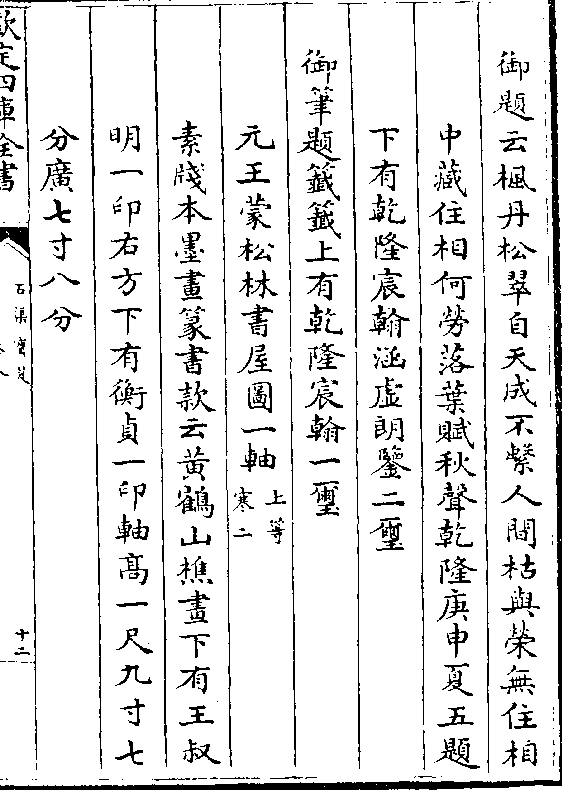 御題云楓丹松翠自天成不繫人間枯與榮無住相
中藏住相何勞落葉賦秋聲乾隆庚申夏五題
下有乾隆宸翰涵虛朗鑒二璽
御筆題籤籤上有乾隆宸翰一璽
元王蒙松林書屋圖一軸上等寒二
素牋本墨畫篆書款云黃鶴山樵畫下有王叔
明一印右方下有衡貞一印軸高一尺九寸七
分廣七寸八分
欽定四庫全書
石渠寶笈
十二